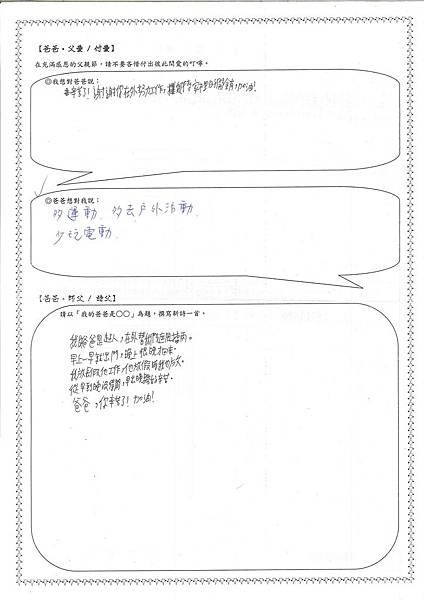 【爸爸‧父量 / 付量】
在充滿感恩的父親節,請不要吝惜付出彼此間愛的叮嚀。
◎我想對爸爸說:
辛苦了!謝謝你在外努力工作,加油!
◎爸爸想對我說:
多運動、多去戶外活動、
少玩電動、
【爸爸‧即父 / 詩父】
請以「我的爸爸是○○」為題,撰寫新詩一首。
我的爸爸是超人,在外替我們遮風擋雨。
早上一早就出門,晚上很晚才回來。
我放假他工作,他放假時我也放
從早到晚沒停,早出晚歸的辛苦。
爸爸,你辛苦了!加油!